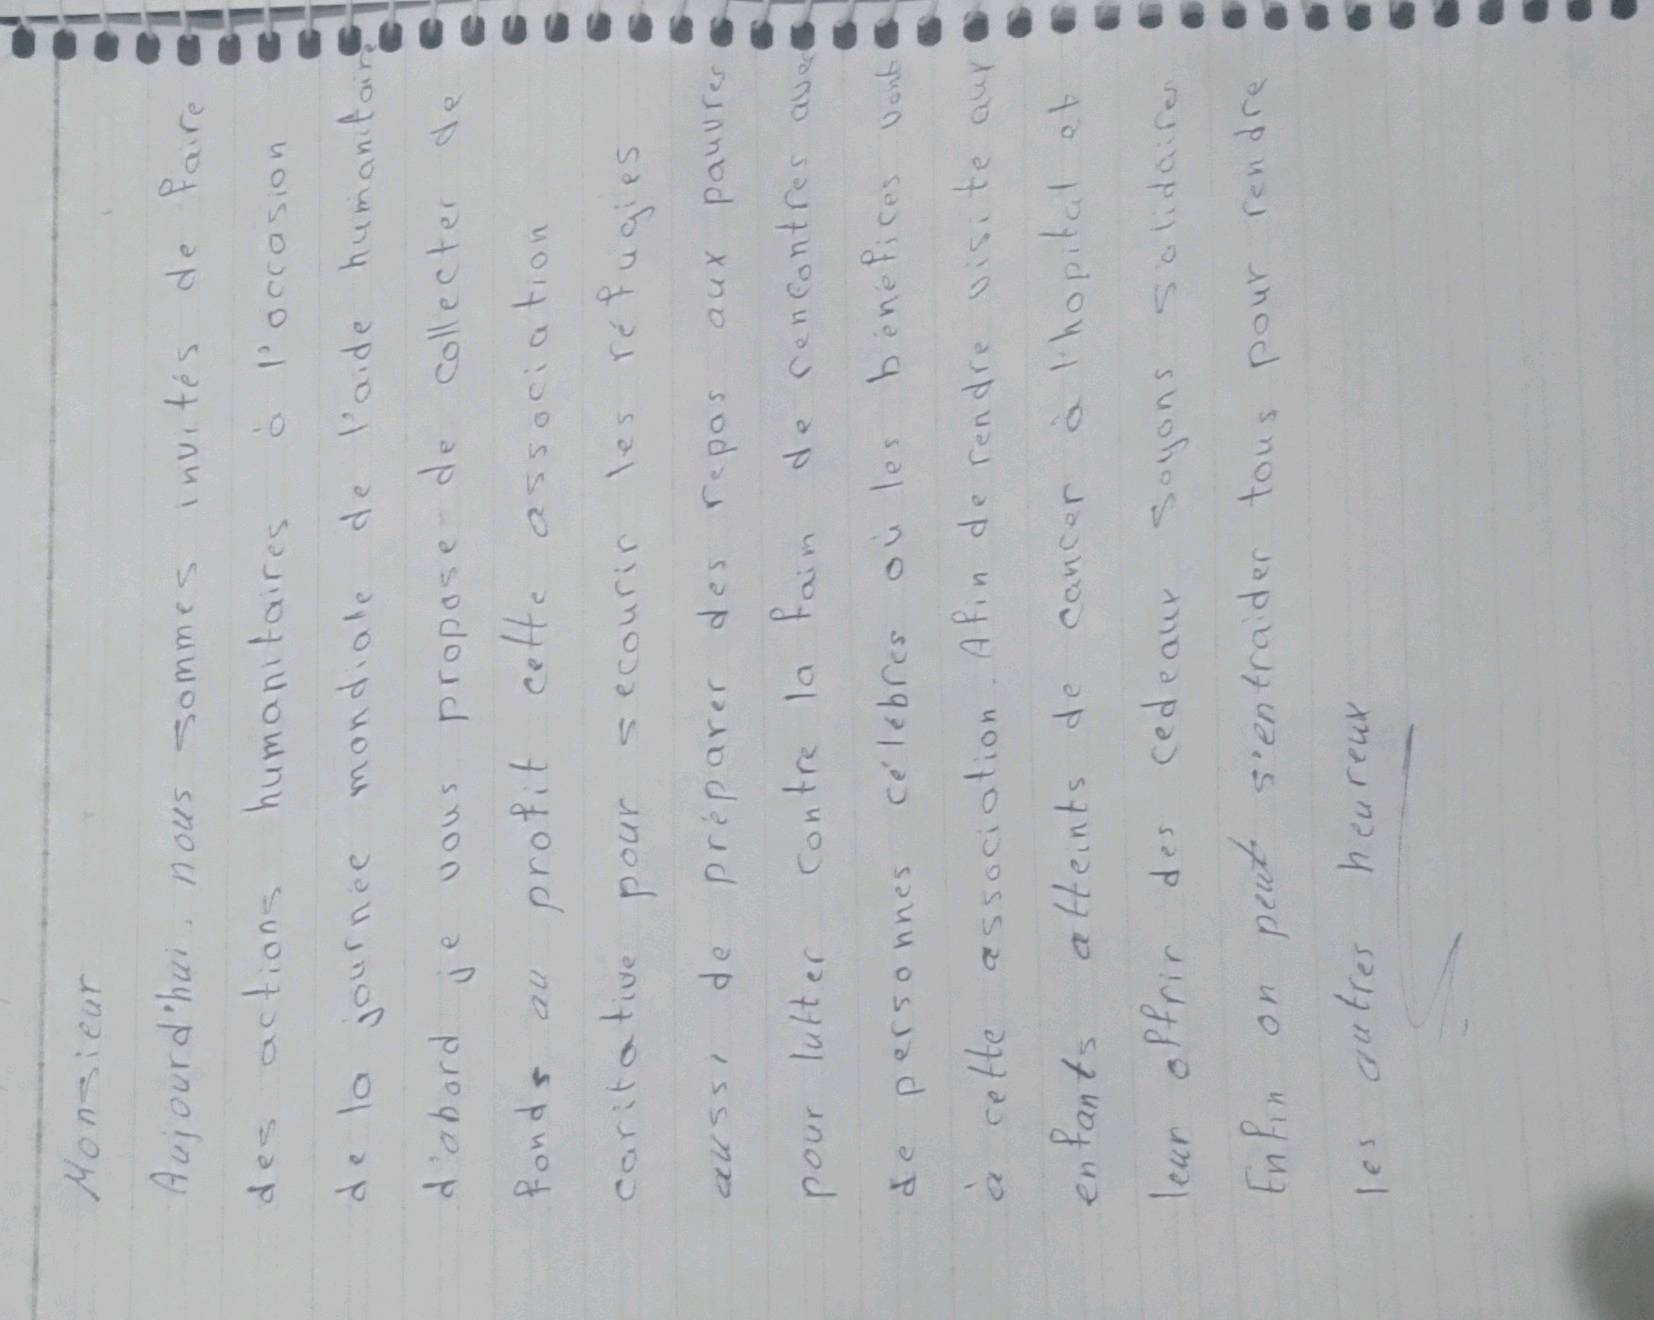 Monsieur
Aujourd'hui, nous sommes invités de faire
des actions humanitaires à l'occasion
de la journée mondiale de l'aide humanitaire
d'abord je vous propose de collecter de
fonds au profit cette association
caritative pour secourir les réfugies
aussi de préparer des repas aux pauvres
pour lutter contre la faim de rencontres avec
de personnes célèbres où les bénéfices vont
à cette association. Afin de rendre visite aux
enfants atteints de cancer à l'hopital et
leur offrir des cedeaux soyons solidaires
Enfin on peut s'entraider tous pour rendre
les autres heureux